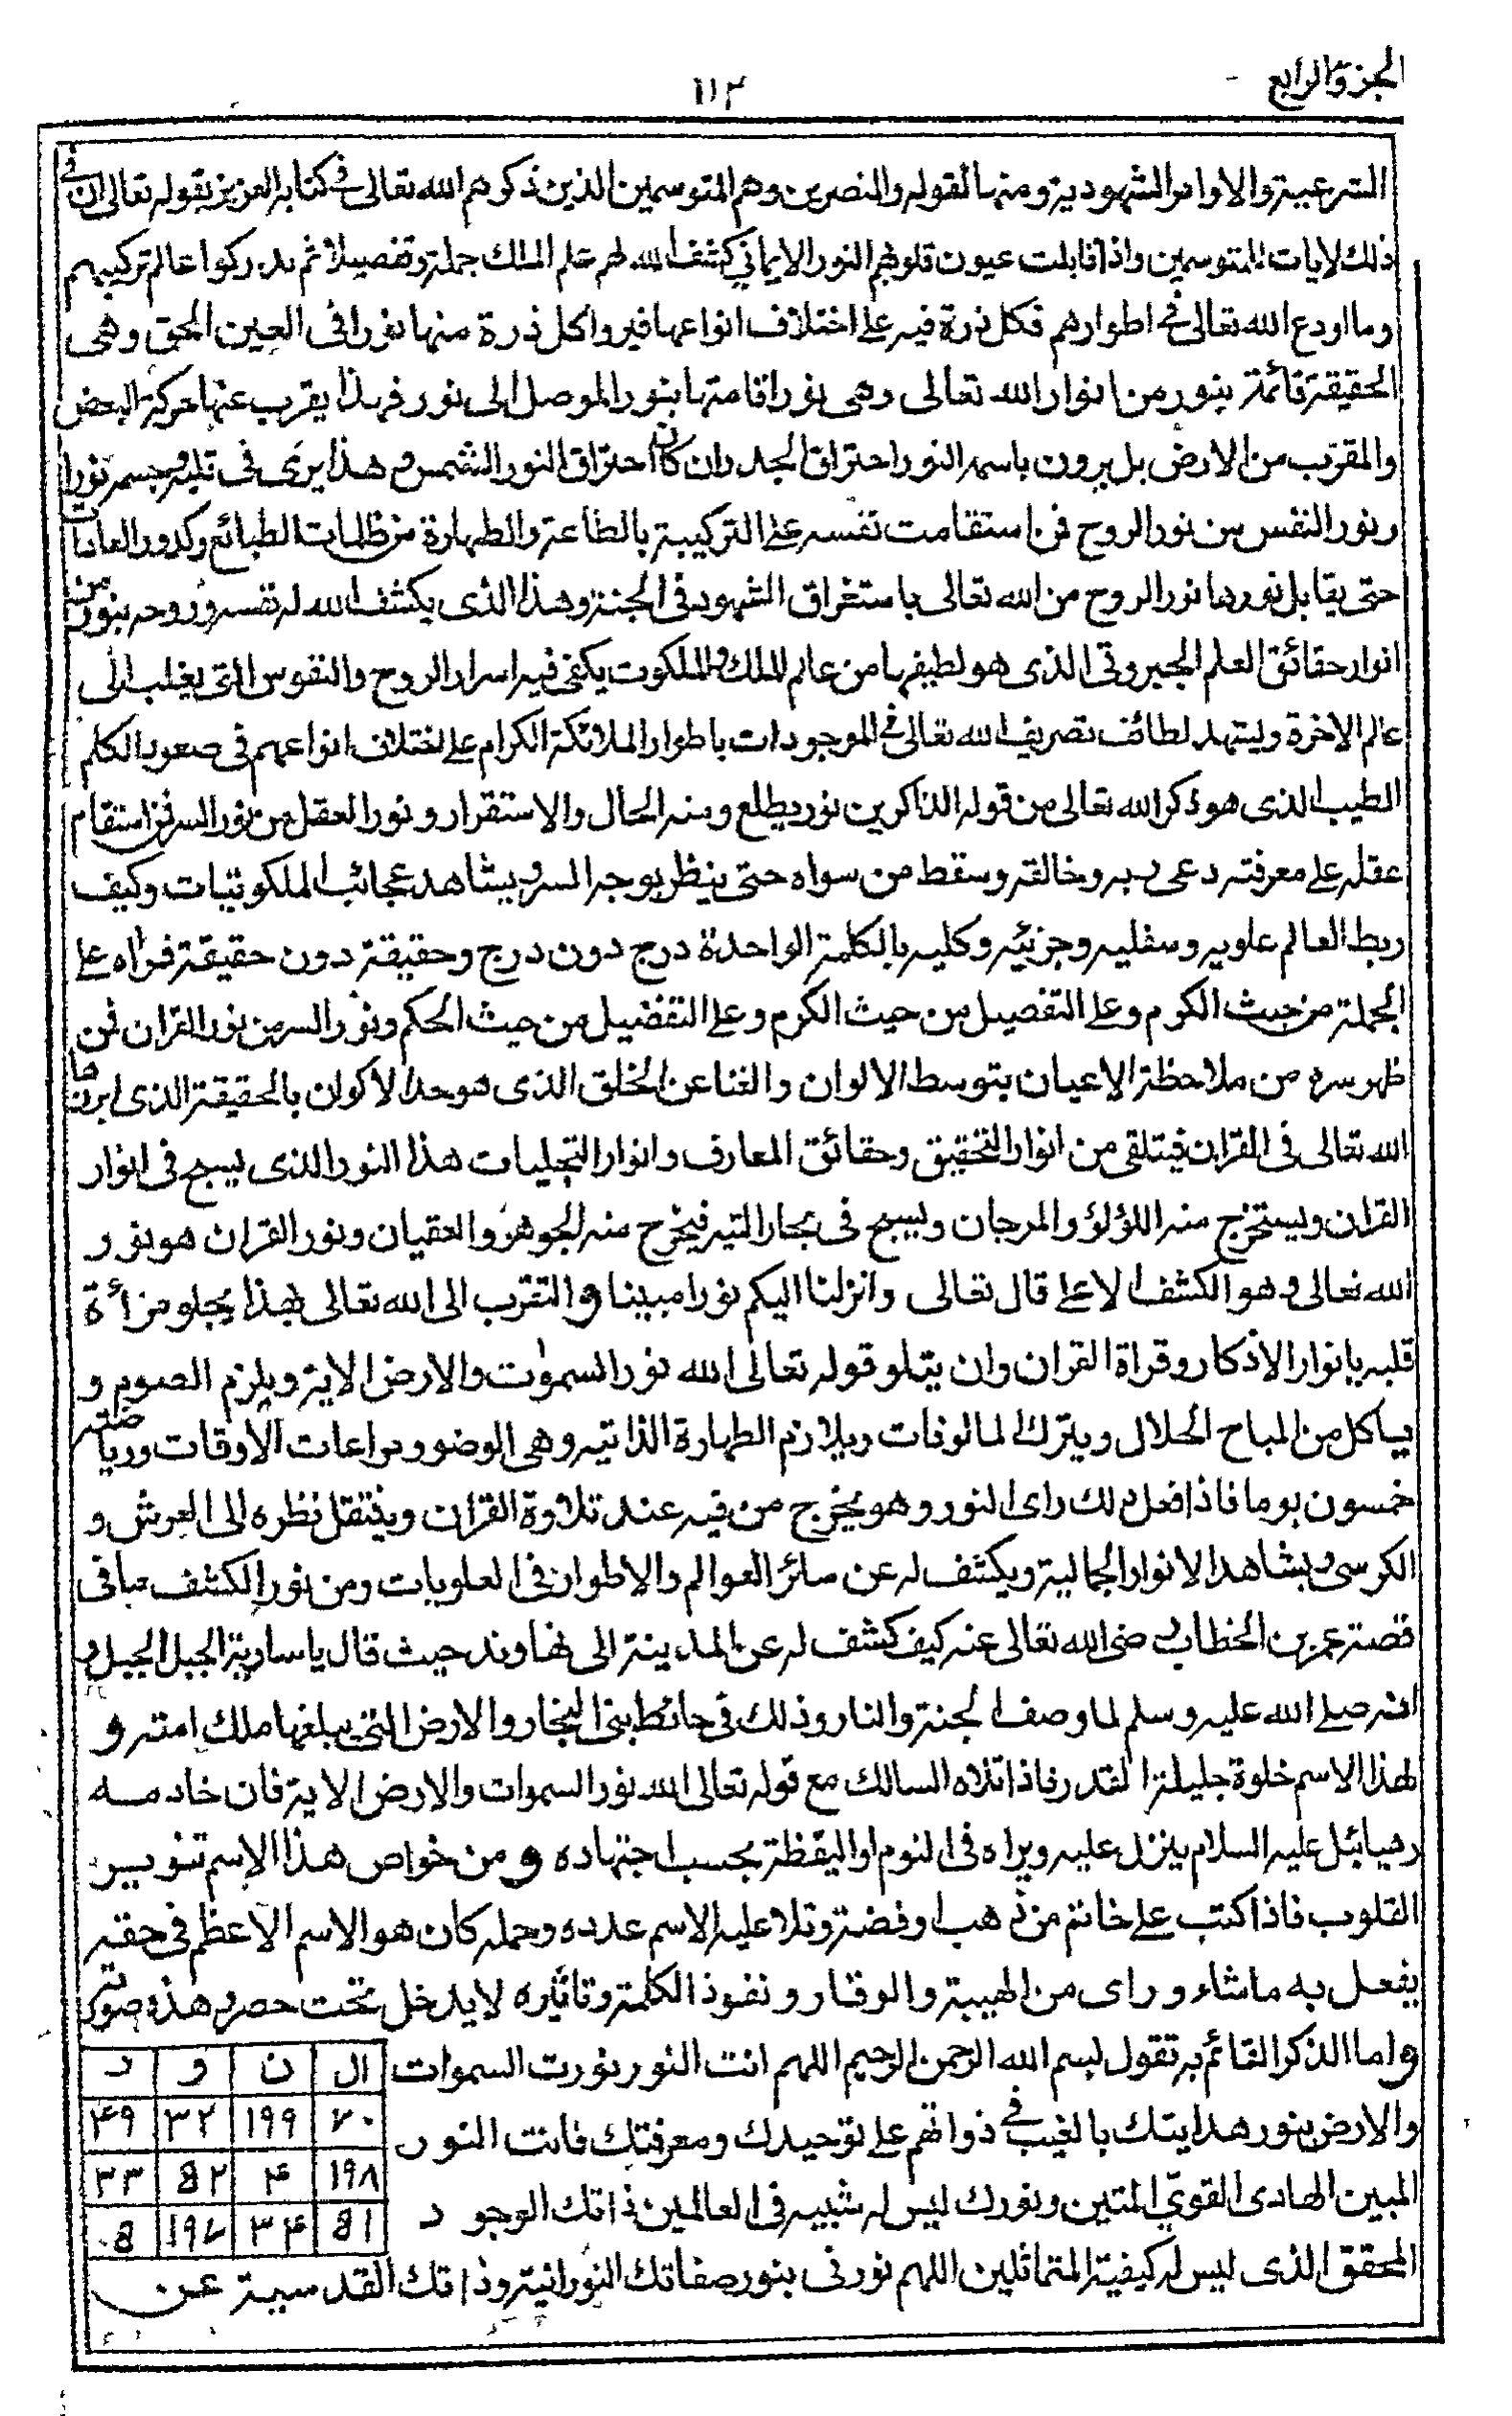 الجزؤ الرابع
١١٣
الشرعية والاوامر الشهودية ومنها القوله والنصرين وهم المتوسمين الذين ذكرهم الله تعالى فى كتابه العزيز بقوله تعالى ان فى
ذلك لايات للمتوسمين واذا قابلت عيون قلوبهم النور الايمانى كشف الله لهم علم الملك جملة وتفصيلا ثم يدركوا عالم تركيبهم
وما اودع الله تعالى فى اطوارهم فكل ذرة فيه على اختلاف انواعها فيروا كل ذرة منها نورا فى العين المحق وهى
الحقيقة قائمة بنور من انوار الله تعالى وهى نور اقامتها بنور الموصل الى نور فهذا يقرب عنها حركة البعض
والمقرب من الارض بل يرون باسمه النور احتراق الجدران كان احتراق النور الشمس وهذا يرى فى قلبه وجسمه نورا
ونور النفس من نور الروح فمن استقامت نفسه على التركيبة بالطاعة والطهارة من ظلمات الطبائع وكدور العادات
حتى يقابل نورها نور الروح من الله تعالى باستغراق الشهود فى الجنة وهذا الذى يكشف الله له نفسه وروحه بنور من
انوار حقائق العلم الجبروتى الذى هو لطيفها من عالم الملك والملكوت يكفى فيه اسرار الروح والنفوس التى يغلب الى
عالم الاخرة وليشهد لطائف تصريف الله تعالى فى الموجودات باطوار الملائكة الكرام على اختلاف انواعهم فى صعود الكلم
الطيب الذى هو ذكر الله تعالى من قوله الذاكرين نور يطلع ومنه الحال والاستقرار ونور العقل من نور السر فمن استقام
عقله على معرفته دعى ربه وخالقه وسقط من سواه حتى ينظر بوجه السر ويشاهد عجائب الملكوتيات وكيف
ربط العالم علويه وسفليه وجزئيه وكليه بالكلمة الواحدة درج دون درج وحقيقة دون حقيقة فراه على
الجملة من حيث الكرم وعلى التفصيل من حيث الكرم وعلى التفضيل من حيث الحكم ونور السر من نور القران فمن
ظهر سره من ملاحظة الاعيان بتوسط الالوان والغنا عن الخلق الذى هو حد الاكوان بالحقيقة الذى ابرزها
الله تعالى فى القران فيتلقى من انوار التحقيق وحقائق المعارف وانوار التجليات هذا النور الذى يسبح فى انوار
القران ويستخرج منه اللؤلؤ والمرجان ويسبح فى بحار التيه فيخرج منه الجوهر والعقيان ونور القران هو نور
الله تعالى وهو الكشف الاعلى قال تعالى وانزلنا اليكم نورا مبينا والتقرب الى الله تعالى بهذا يجلو مرأة
قلبه بانوار الاذكار وقراة القران وان يتلو قوله تعالى الله نور السموات والارض الاية ويلزم الصوم و
ياكل من المباح الحلال ويترك المالوفات ويلازم الطهارة الذاتيه وهى الوضو ومراعات الاوقات ورياضته
خمسون يوما فاذا فعل ذلك راى النور وهو يخرج من فيه عند تلاوة القران وينتقل نظره الى العرش و
الكرسى ويشاهد الانوار الجمالية ويكشف له عن سائر العوالم والاطوار فى العلويات ومن نور الكشف مافى
قصة عمر بن الخطاب رضى الله تعالى عنه كيف كشف له عن المدينة الى نهاوند حيث قال يا سارية الجبل الجبل و
انه صلى الله عليه وسلم لما وصف الجنة والنار وذلك فى حائط بنى النجار والارض التى يبلغها ملك امته و
لهذا الاسم خلوة جليلة القدر فاذا تلاه السالك مع قوله تعالى الله نور السموات والارض الاية فان خادمه
رهيائل عليه السلام ينزل عليه ويراه فى النوم او اليقظة بحسب اجتهاده ومن خواص هذا الاسم تنوير
القلوب فاذا كتب على خاتم من ذهب او فضة وتلا عليه الاسم عدده وحمله كان هو الاسم الاعظم فى حقه
يفعل به ماشاء وراى من الهيبة والوقار ونفوذ الكلمة وتاثيره لا يدخل تحت حصر وهذه صورته
واما الذكر القائم به تقول بسم الله الرحمن الرحيم اللهم انت النور نورت السموات
والارض بنور هدايتك بالغيب فى ذواتهم على توحيدك ومعرفتك فانت النور
المبين الهادى القوى المتين ونورك ليس له شبيه فى العالمين ذاتك الوجود
المحقق الذى ليس له كيفية المتماثلين اللهم نورنى بنور صفاتك النورانية وذاتك القدسية عن
ال ن و ر
٧٠ ١٩٩ ٣٢ ٤٩
١٩٨ ٤ ٥٢ ٣٣
٥١ ٣٤ ١٩٧ ٥٠